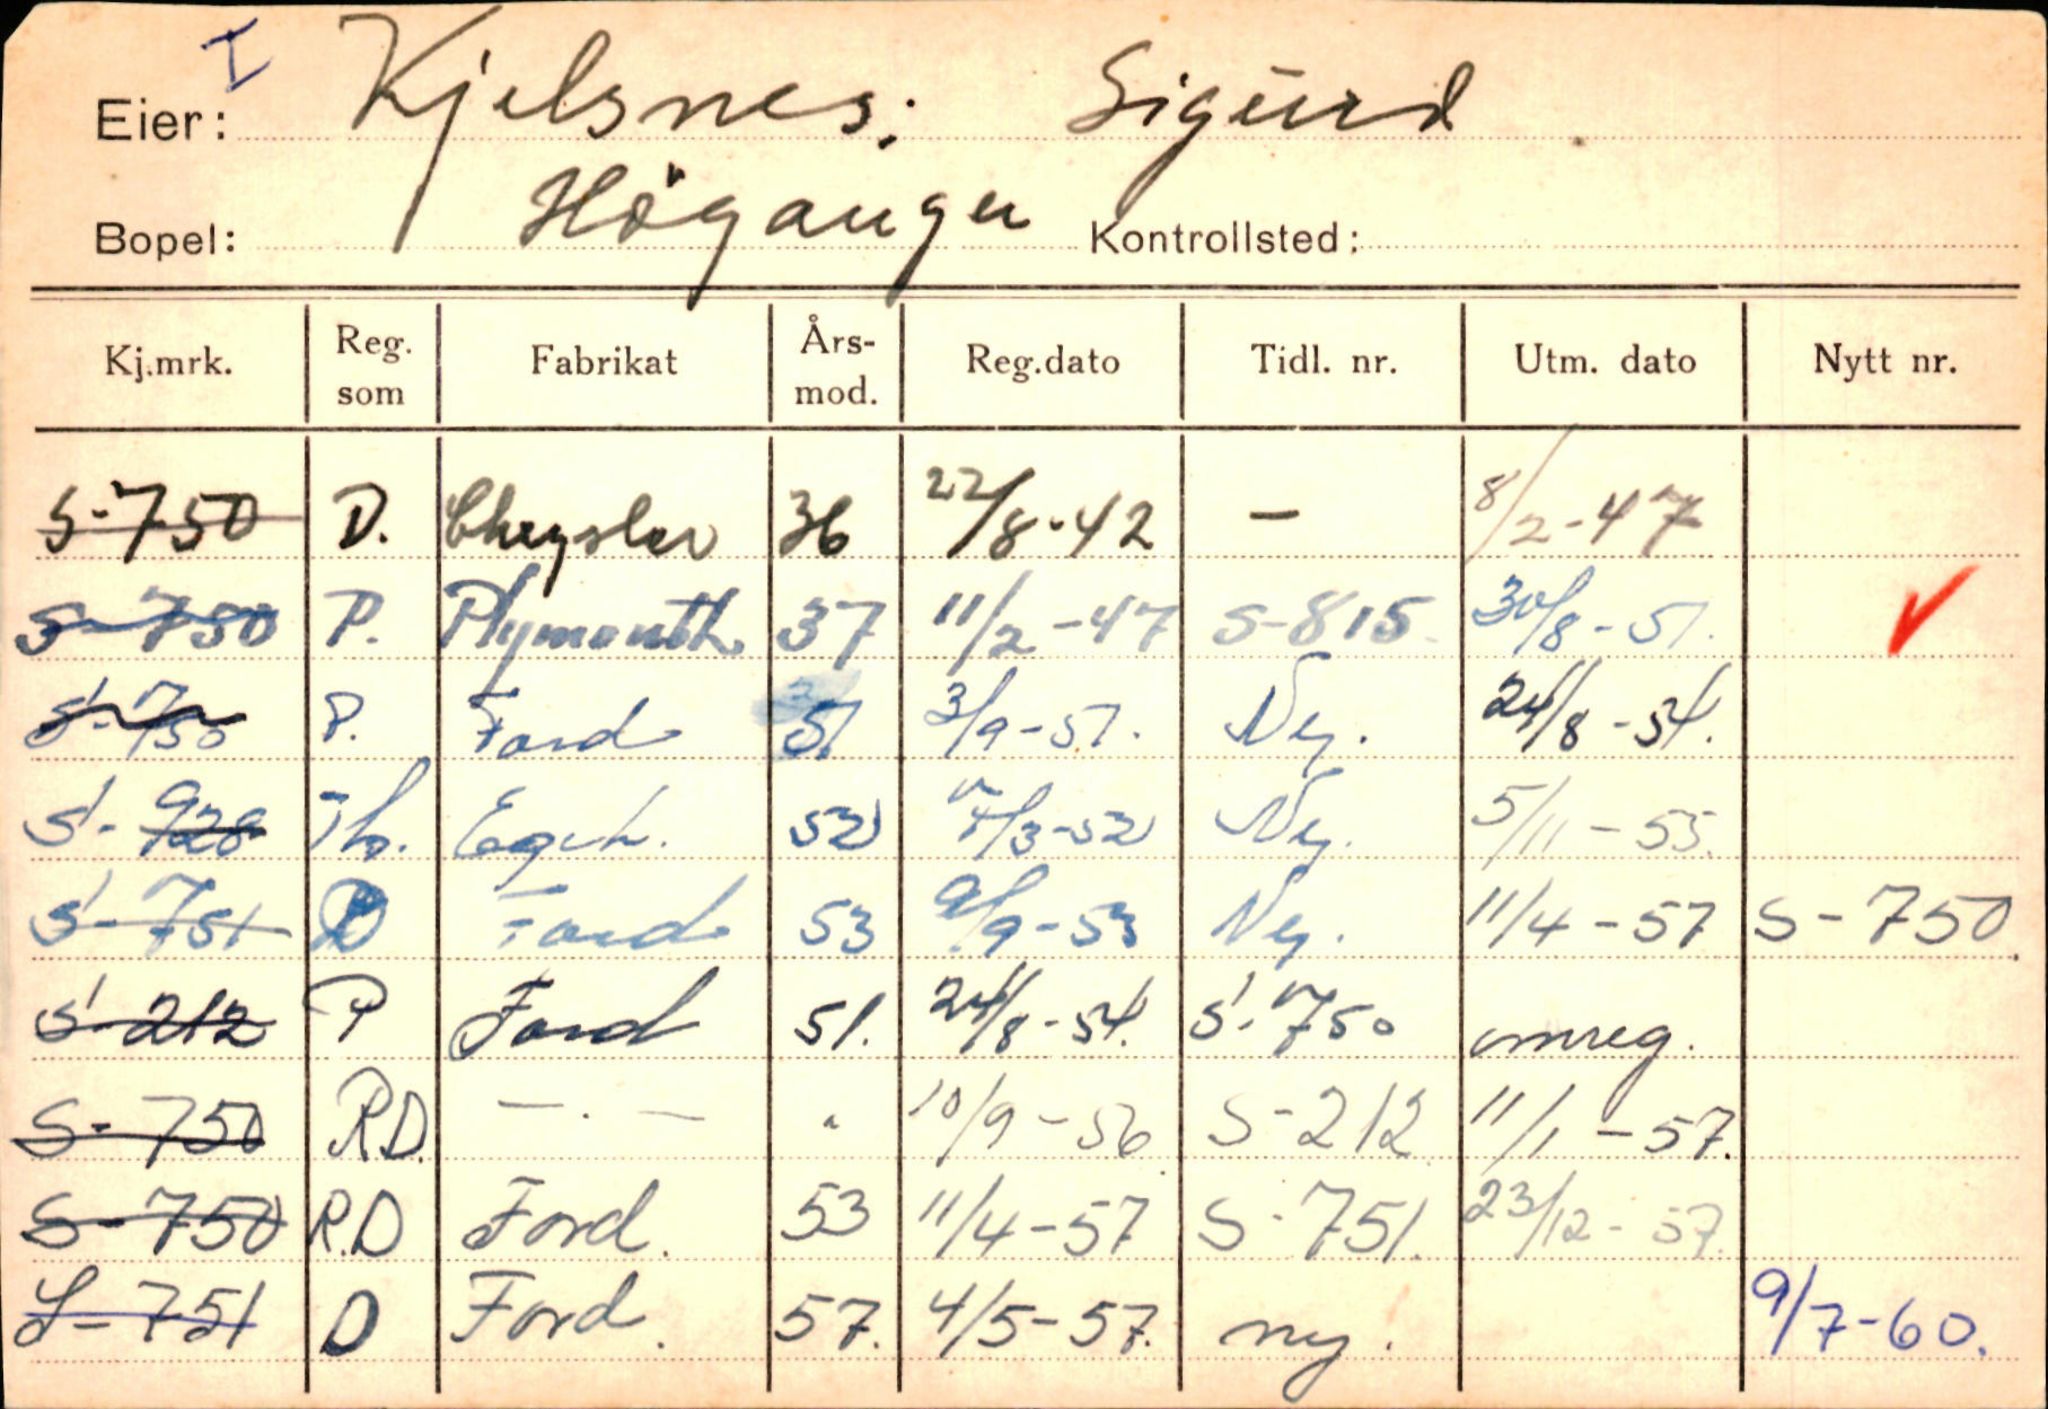 I
Eier: Kjelsnes, Sigurd
Bopel: Höganger Kontrollsted:
Kj.mrk. Reg. som Fabrikat Års-mod. Reg.dato Tidl. nr. Utm. dato Nytt nr.
S-750 D. Chrysler 36 22/8-42 — 8/2-47
S-750 P. Plymouth 37 11/2-47 S-815 30/8-51.
S-750 P. Ford 51 3/9-51. Ny. 24/8-54.
S-928 52 /3-52 Ny. 5/11-55.
S-751 D Ford 53 9/9-53 Ny. 11/4-57 S-750.
S-212 P Ford 51. 24/8-54. S-750 omreg.
S-750 R.D. —·— " 10/9-56. S-212. 11/1-57.
S-750 R.D Ford. 53 11/4-57 S-751. 23/12-57.
S-751 D Ford. 57. 4/5-57. ny. 9/7-60.